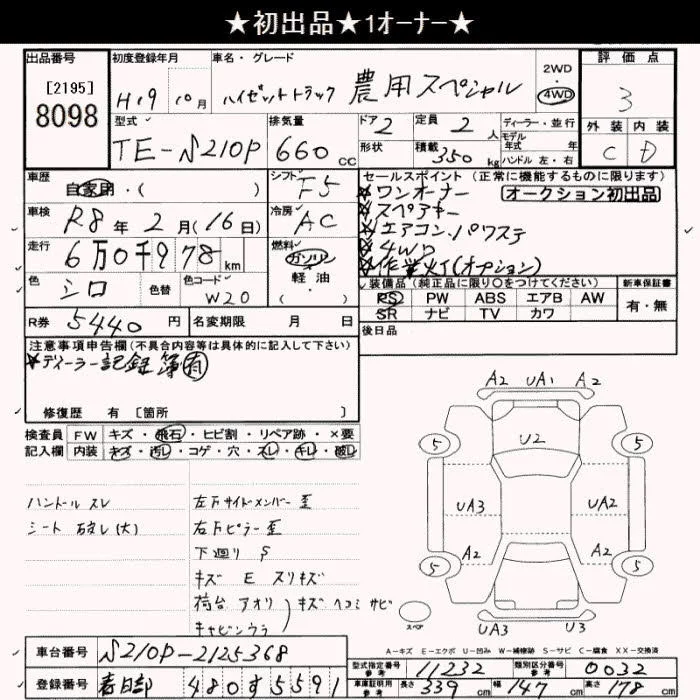 ★初出品★1オーナー★
出品番号 [2195] 8098
初度登録年月 H19 10月
車名・グレード ハイゼットトラック 農用スペシャル
2WD 4WD
評価点 3
外装 内装
C D
型式 TE-S210P
排気量 660 CC
ドア 2
定員 2人
形状
積載 350kg
ディーラー・並行
モデル年式 年式
ハンドル 左・右
車歴 自家用・( )
シフト F5
車検 R8年2月(16日)
冷房 AC
走行 6万0千978km
燃料 ガソリン 軽油 ( )
色 シロ 色替
色コード W20
R券 5440円
名変期限 月 日
セールスポイント(正常に機能するものに限ります)
★ワンオーナー オークション初出品
★スペアキー
★エアコン.パワステ
★4WD
★作業灯(オプション)
装備品(純正品に限り○をつけてください)
新車保証書
PS PW ABS エアB AW
有・無
SR ナビ TV カワ
後日品
注意事項申告欄(不具合内容等は具体的に記入して下さい)
★ディーラー記録簿(有)
修復歴 有 [箇所 ]
検査員記入欄
FW キズ・飛石・ヒビ割・リペア跡・×要
内装 キズ・汚レ・コゲ・穴・スレ・キレ・破レ
ハンドル スレ
シート 破レ(大)
左右サイドメンバー 歪
右右ピラー 歪
下廻り S
キズ E スリキズ
荷台 アオリ キズ ヘコミ サビ
キャビンウラ
A2 UA1 A2
5 U2 5
UA3 UA2
A2 A2
5 5
スペア
UA3 U3
A-キズ E-エクボ U-凹み W-補修跡 S-サビ C-腐食 XX-交換済
車台番号 S210P-2125368
型式指定番号 参考 11232
類別区分番号 参考 0032
登録番号 春日部 480す5591
車庫証明用 参考 長さ 339cm 幅 147cm 高さ 178cm